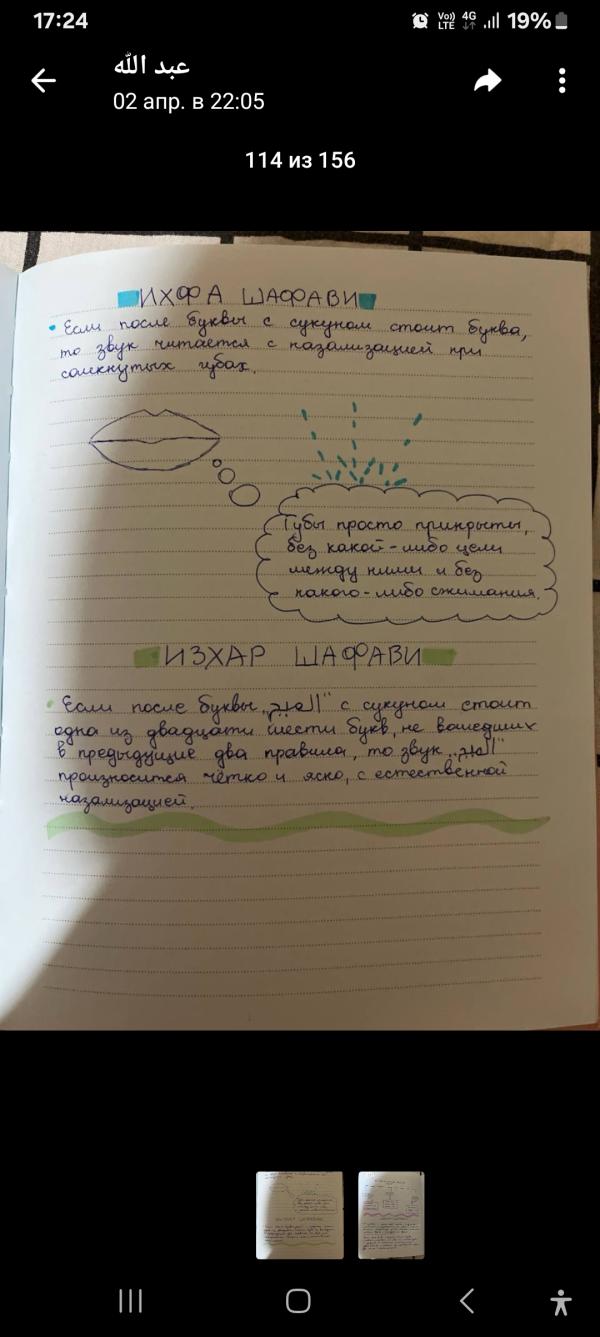 17:24
Vo)) 4G 19%
LTE
عبد الله
02 апр. в 22:05
114 из 156
ИХФА ШАФАВИ
• Если после буквы с сукуном стоит буква,
то звук читается с назализацией при
сомкнутых губах.
Губы просто прикрыты,
без какой-либо цели
между ними и без
какого-либо сжимания.
ИЗХАР ШАФАВИ
• Если после буквы „الميم" с сукуном стоит
одна из двадцати шести букв, не вошедших
в предыдущие два правила, то звук „الميم"
произносится чётко и ясно, с естественной
назализацией.